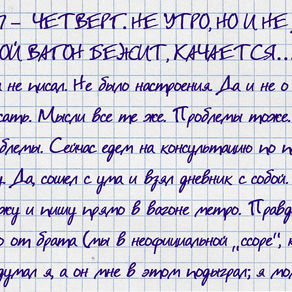 7 – ЧЕТВЕРГ. НЕ УТРО, НО И НЕ
ОЙ ВАГОН БЕЖИТ, КАЧАЕТСЯ...
не писал. Не было настроения. Да и не о
сать. Мысли все те же. Проблемы тоже.
блемы. Сейчас едем на консультацию по п
у. Да, сошел с ума и взял дневник с собой.
жу и пишу прямо в вагоне метро. Правд
о от брата (мы в неофициальной „ссоре", к
думал я, а он мне в этом подыграл; я мол